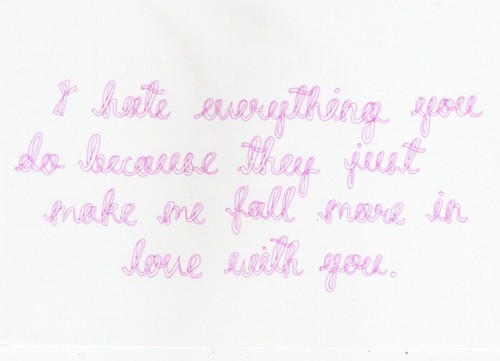 I hate everything you
do because they just
make me fall more in
love with you.